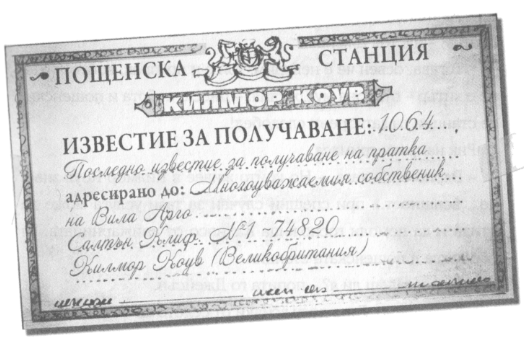 ПОЩЕНСКА СТАНЦИЯ
КИЛМОР КОУВ
ИЗВЕСТИЕ ЗА ПОЛУЧАВАНЕ: 1064
Последно известие за получаване на пратка
адресирано до: Многоуважаемия собственик
на Вила Арго
Салтън Клиф №1 -74820
Килмор Коув (Великобритания)